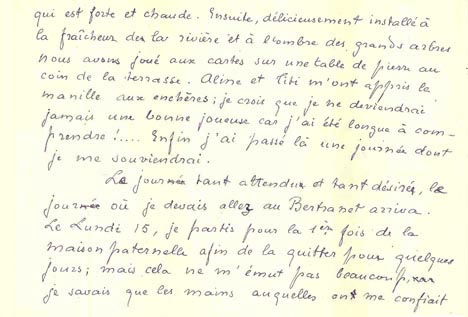 qui est forte et chaude. Ensuite, délicieusement installé à
la fraîcheur de la rivière et à l'ombre des grands arbres
nous avons joué aux cartes sur une table de pierre au
coin de la terrasse. Aline et Titi m'ont appris la
manille aux enchères; je crois que je ne deviendrai
jamais une bonne joueuse car j'ai été longue à com-
prendre!.... Enfin j'ai passé là une journée dont
je me souviendrai.
Le jour tant attendu et tant désiré, le
jour où je devais aller au Bertranet arriva.
Le Lundi 15, je partis pour la 1ère fois de la
maison paternelle afin de la quitter pour quelques
jours; mais cela ne m'émut pas beaucoup, car
je savais que les mains auquelles on me confiait